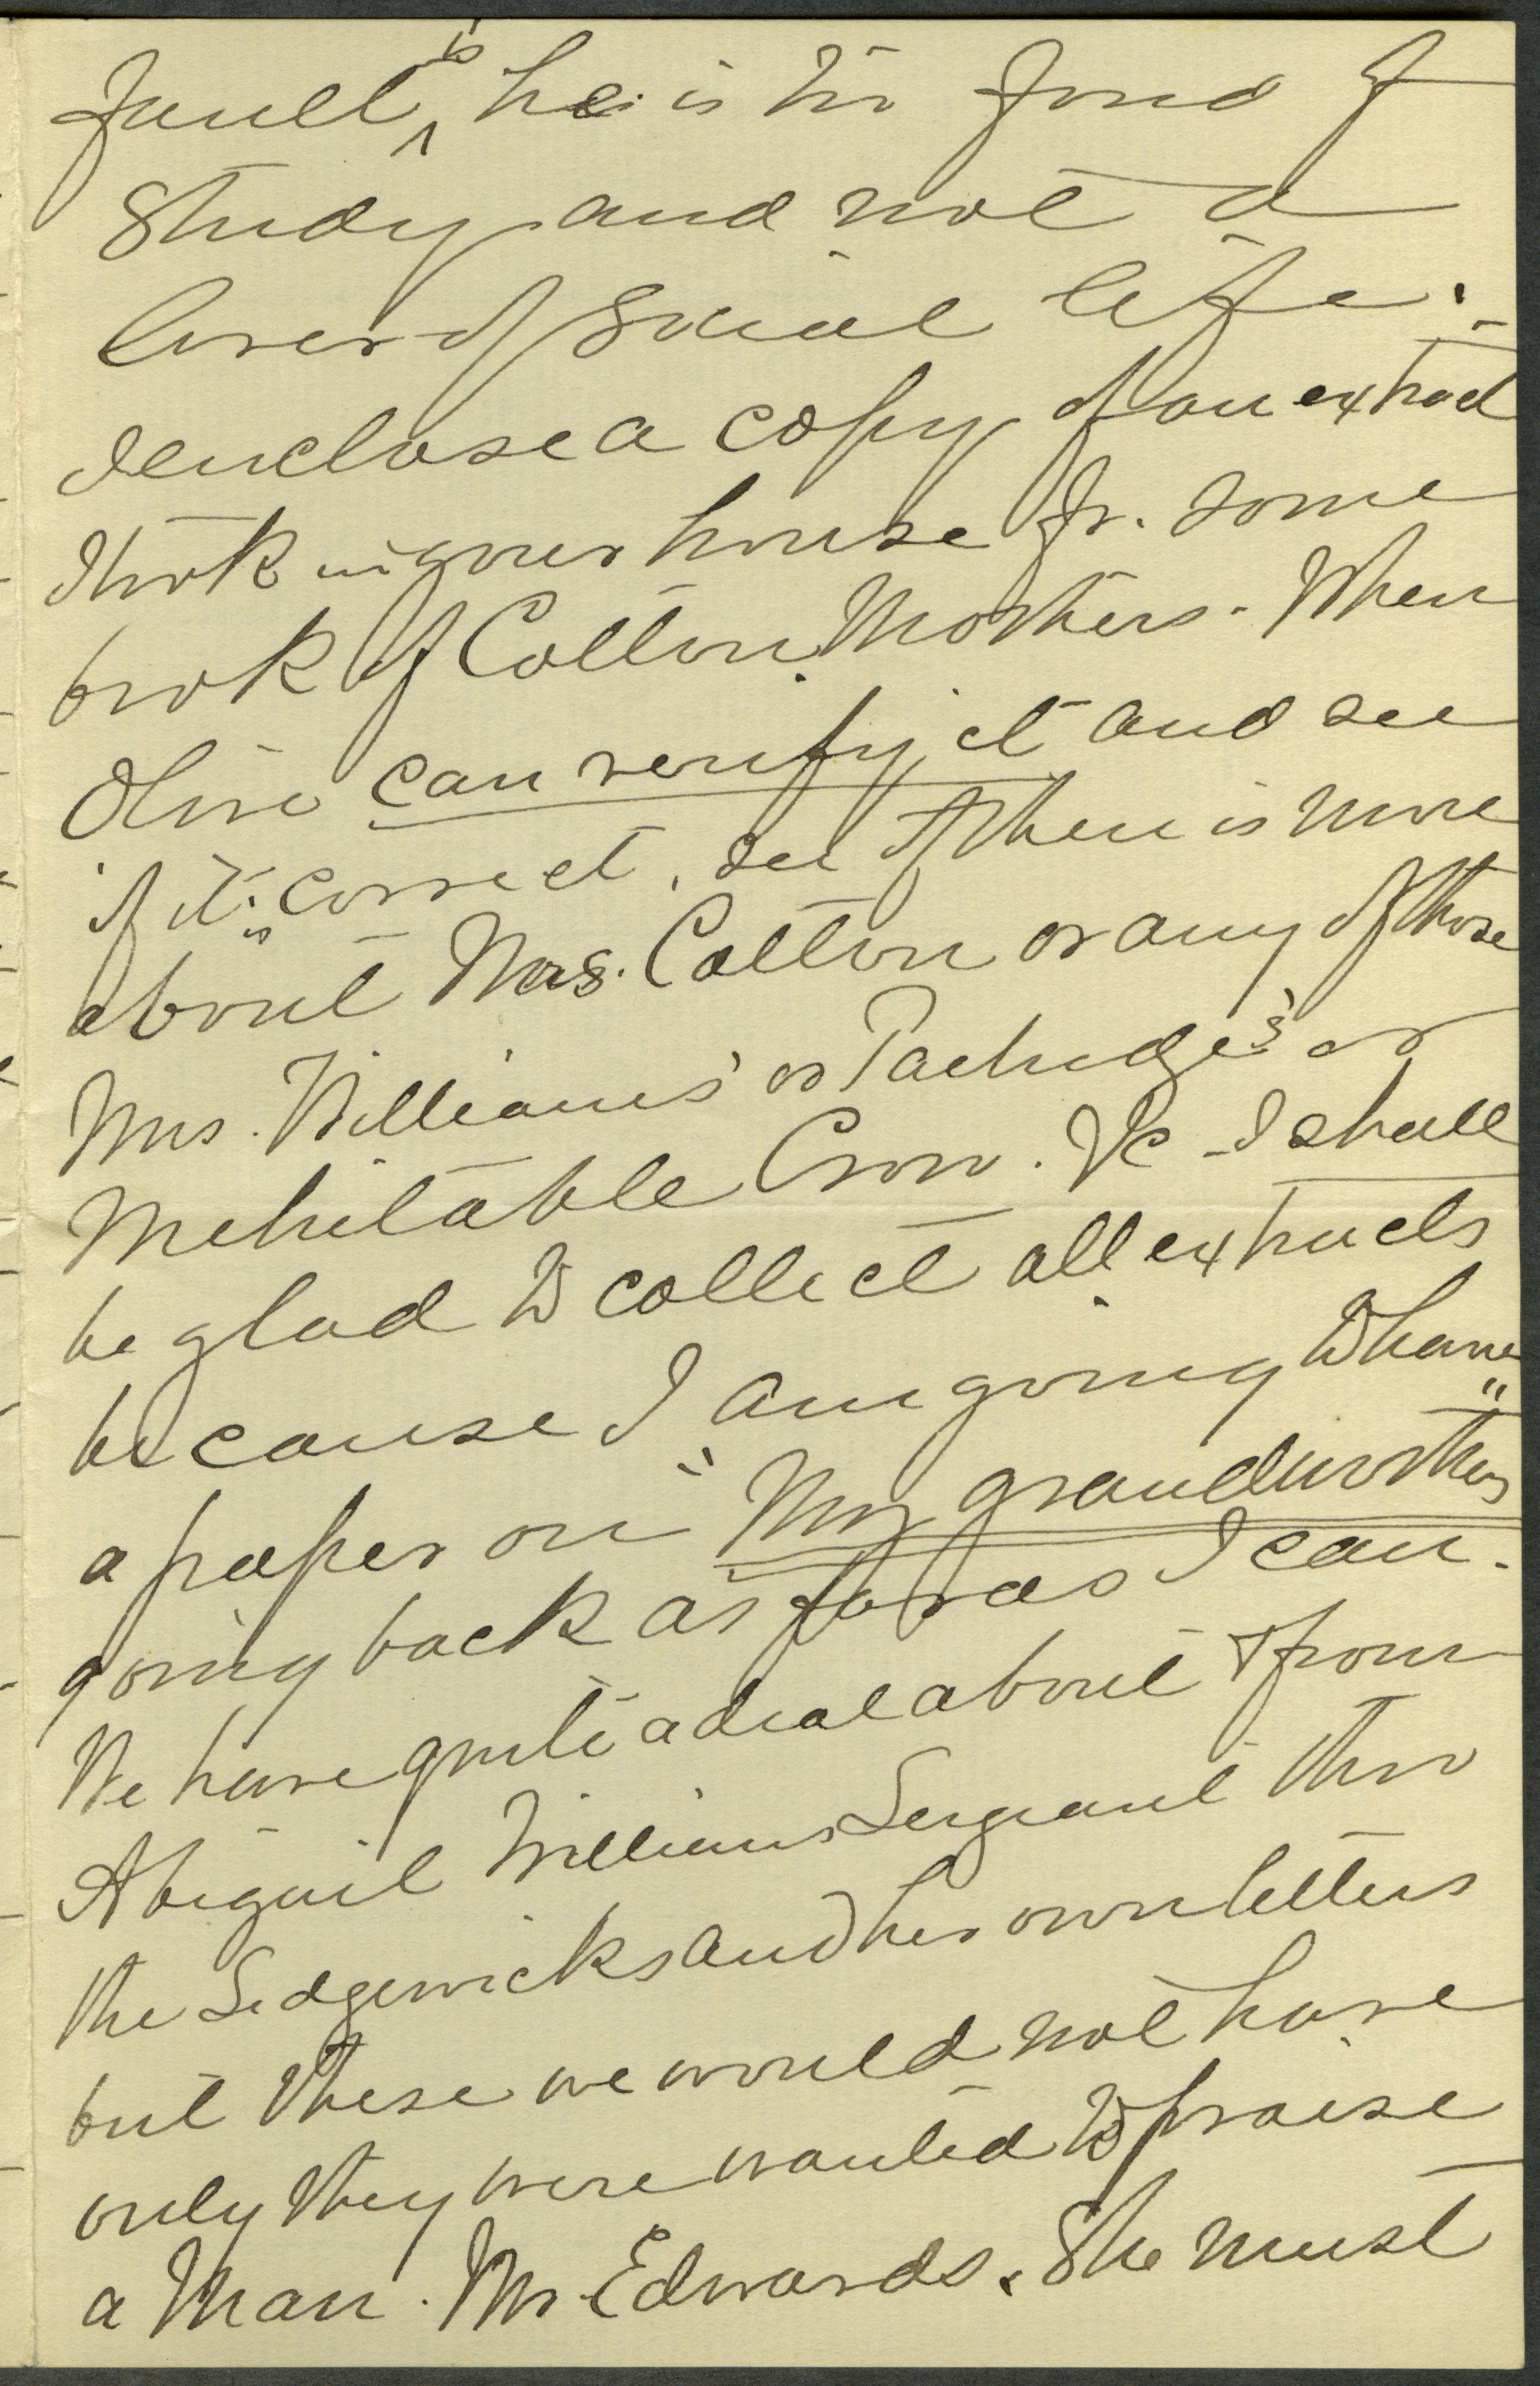 fault is he is too fond of
Study and not a
lover of Social life. -
I enclose a copy of an extract
I took in your house fr. some
book of Cotton Mathers. When
Olive can verify it and see
if it is correct, see if there is more
about Mrs. Cotton or any of those
Mrs. Williams' or Patridge's or
Mehitable Crow. &c - I shall
be glad to collect all extracts
because I am going to have
a paper on "My grandmothers"
going back as far as I can.
We have quite a deal about & from
Abigail Williams Sergeant thro
the Sedgewicks and her own letters
but these we would not have
only they were wanted to praise
a Man. Mr. Edwards. She must